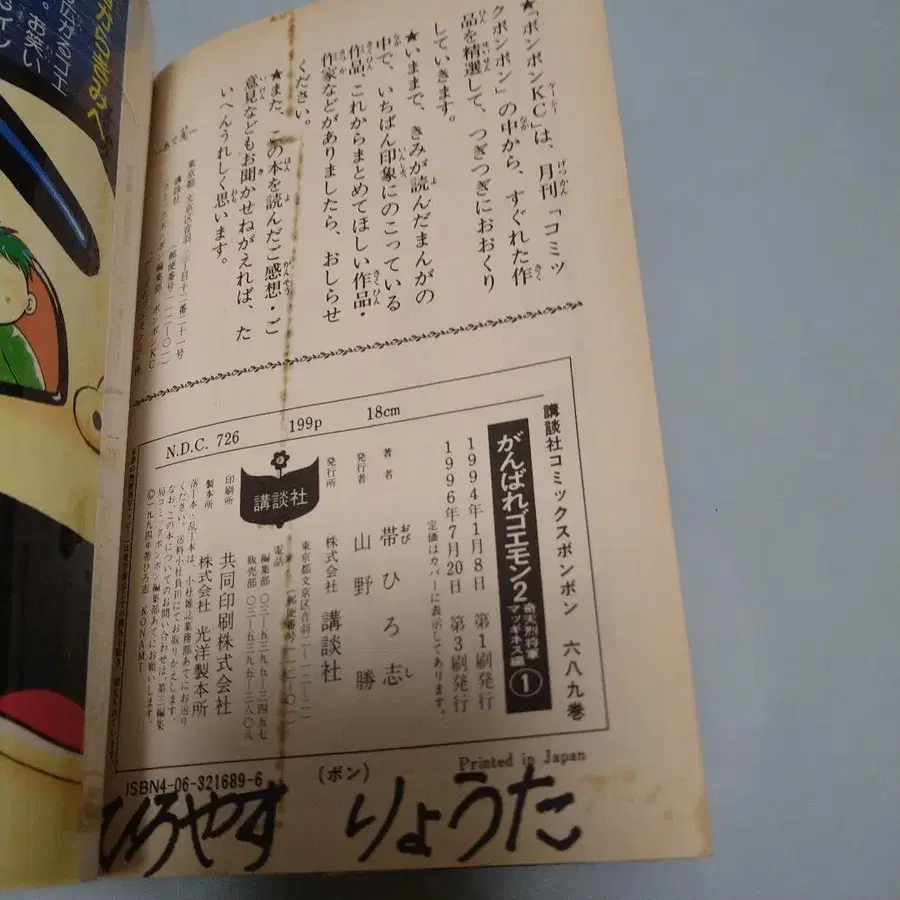 ★「ボンボンKC」は、月刊「コミッ
クボンボン」の中から、すぐれた作
品を精選して、つぎつぎにおおくり
していきます。
★いままで、きみが読んだまんがの
中で、いちばん印象にのこっている
作品、これからまとめてほしい作品・
作家などがありましたら、おしらせ
ください。
★また、この本を読んだご感想・ご
意見などもお聞かせねがえれば、た
いへんうれしく思います。
東京都 文京区音羽 二丁目十二番二十一号
講談社
講談社コミックスボンボン 六八九巻
がんばれゴエモン2 奇天烈将軍マッギネス編 ①
1994年1月8日 第1刷発行
1996年7月20日 第3刷発行
定価はカバーに表示してあります。
著者 帯ひろ志
発行者 山野 勝
発行所 株式会社 講談社
東京都文京区音羽二—一二—二一
電話 編集部 〇三—五三九五—三四五七
販売部 〇三—五三九五—三六〇八
印刷所 共同印刷株式会社
製本所 株式会社 光洋製本所
落丁本・乱丁本は、小社雑誌業務部あてにお送り
ください。送料小社負担にてお取りかえします。
なお、この本についてのお問い合わせは、第三編集
局コミックボンボン編集部あてにお願いします。
©一九九四年帯ひろ志 KONAMI
講談社
N.D.C. 726 199p 18cm
Printed in Japan
ISBN4-06-321689-6 (ボン)
ひろやす りょうた